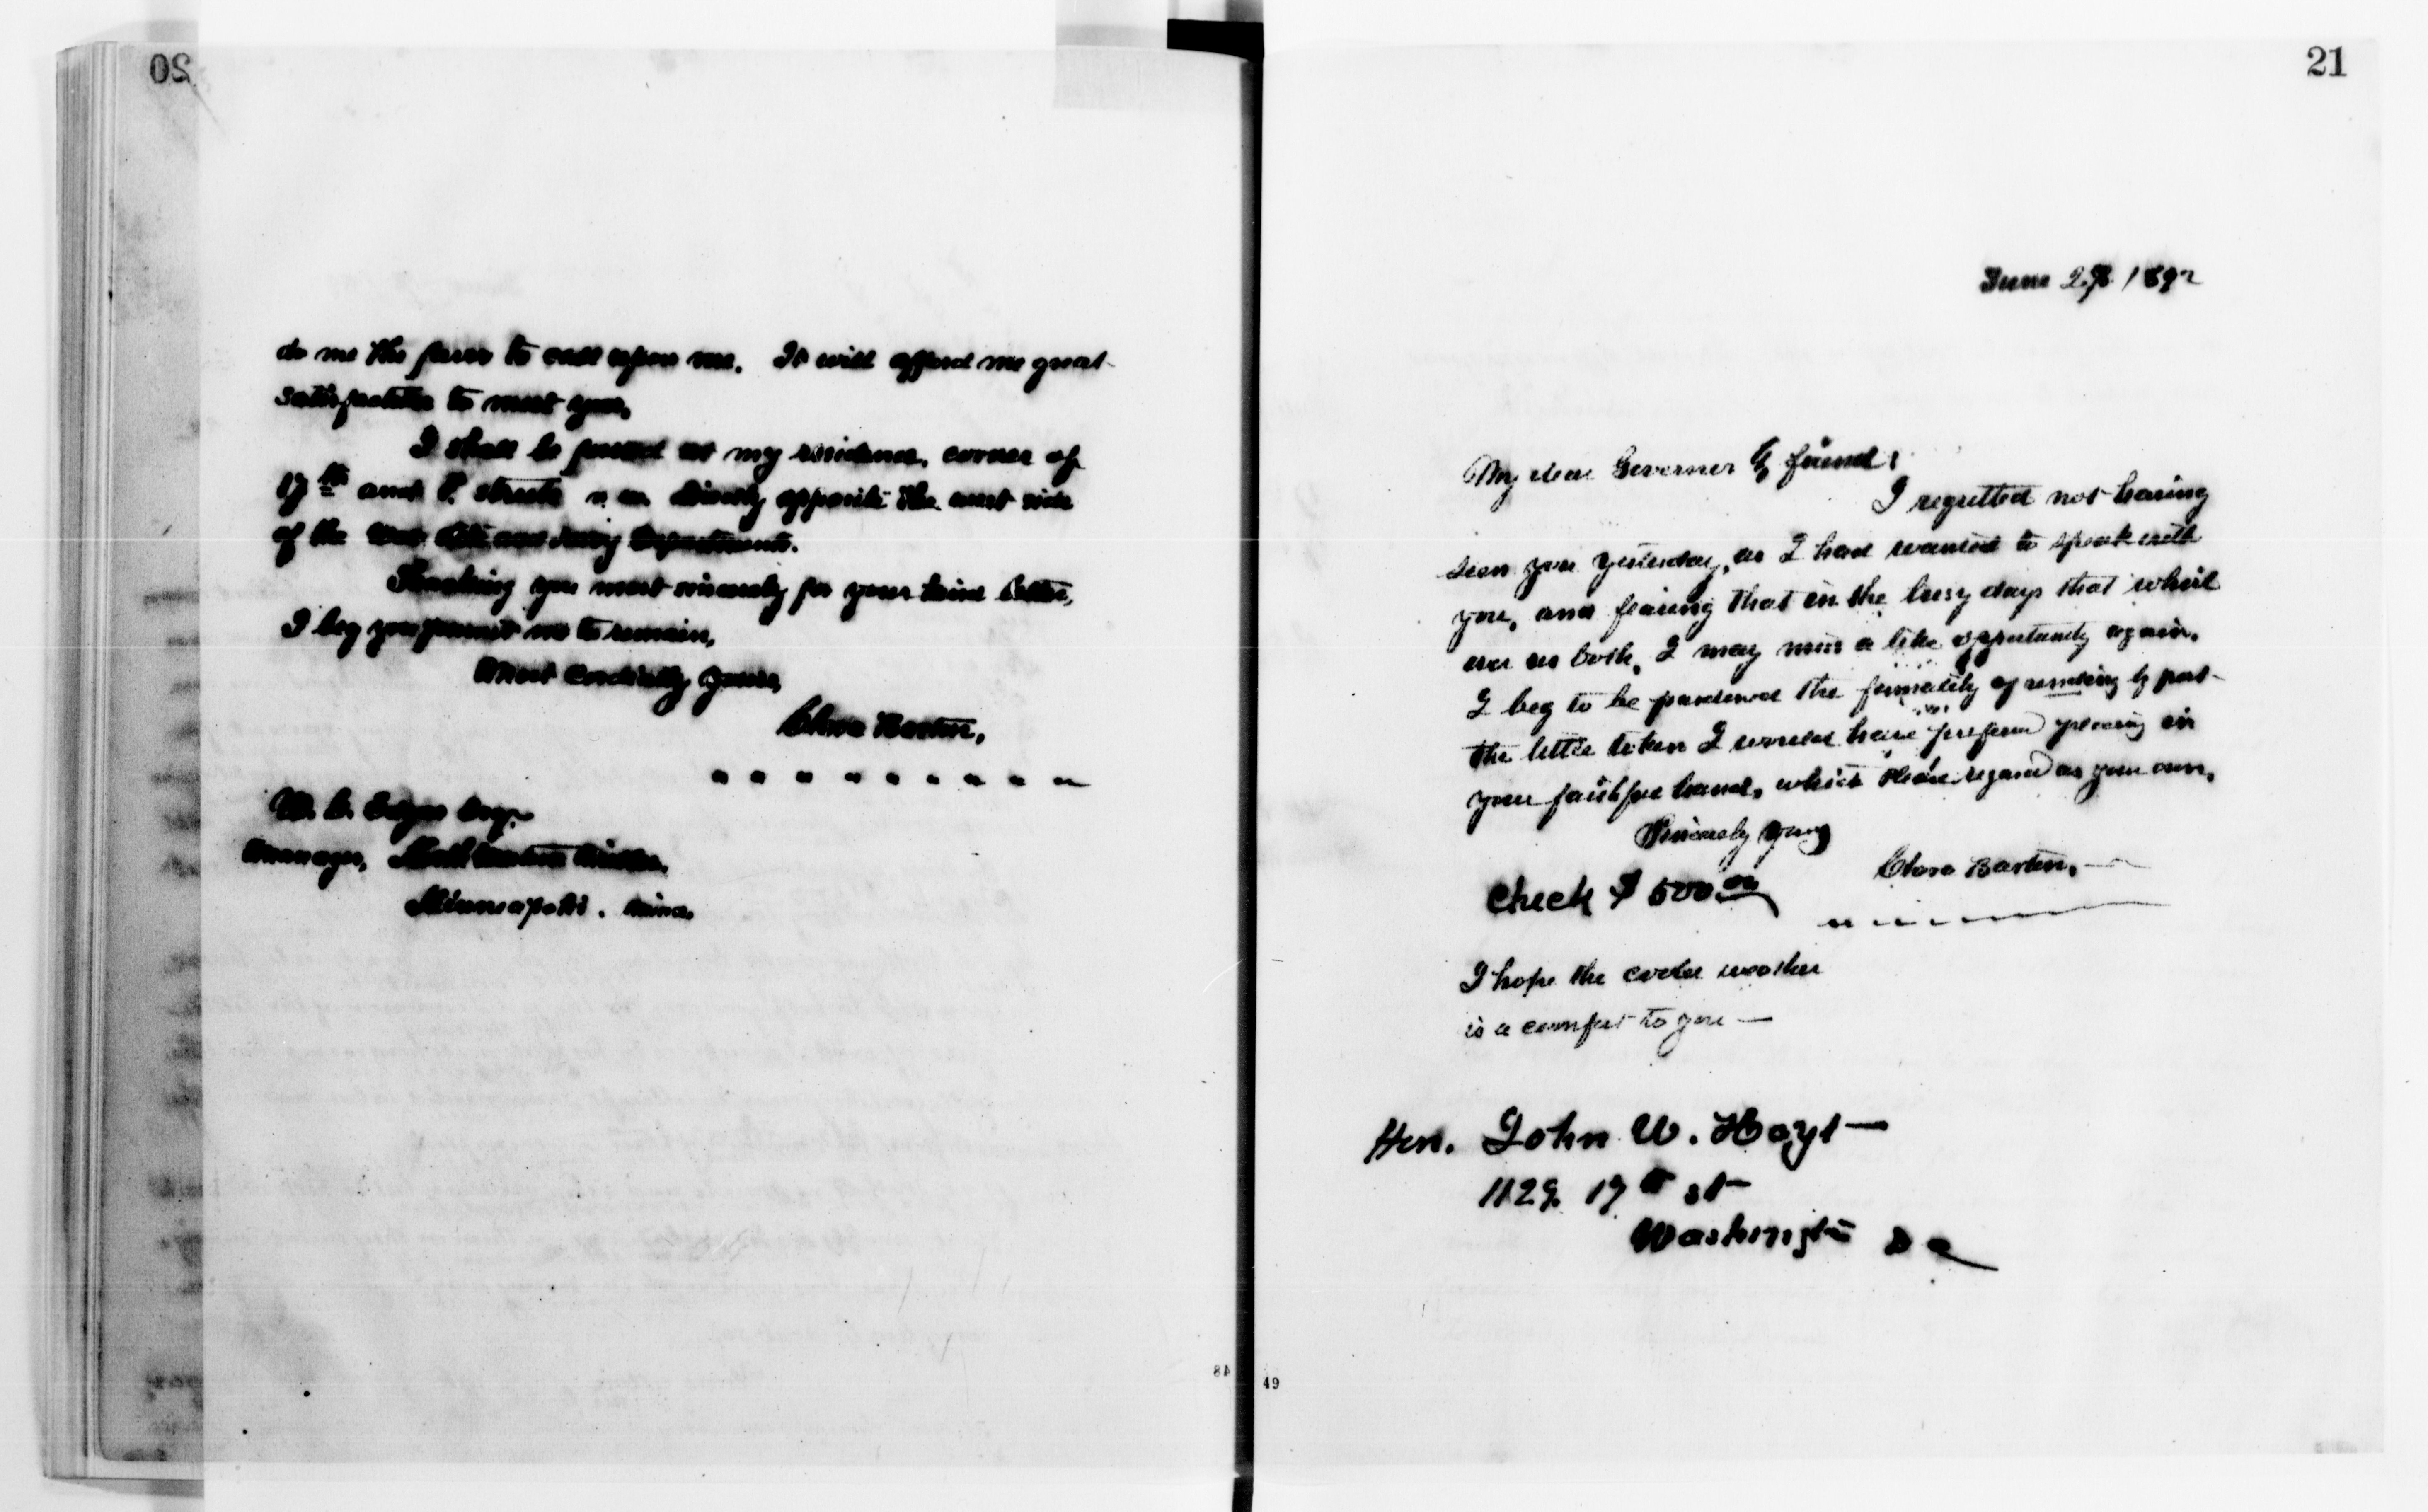 do me the favor to call upon me. It will afford me great
satisfaction to meet you.
I shall be found at my residence, corner of
17th and F. streets n.w. directly opposite the west side
of the War State and Navy Departments.
Thanking you most sincerely for your kind letter,
I beg you permit me to remain,
Most Cordially yours,
Clara Barton,
W. C. Edgar Esq.
Manager, Northwestern Miller,
Minneapolis. Minn.
48
21
June 1892
My dear Governor & friend:
I regretted not having
seen you yesterday, as I had wanted to speak with
you, and fearing that in the busy days that whirl
over us both, I may miss a like opportunity again,
I beg to be pardoned the formality of sending by post
the little token I would have preferred placing in
your faithful hand, which please regard as your own,
Sincerely yours
Clara Barton,
Check $500.00
I hope the cooler weather
is a comfort to you —
Hon. John W. Hoyt —
1129. 19th st
Washington D C
49